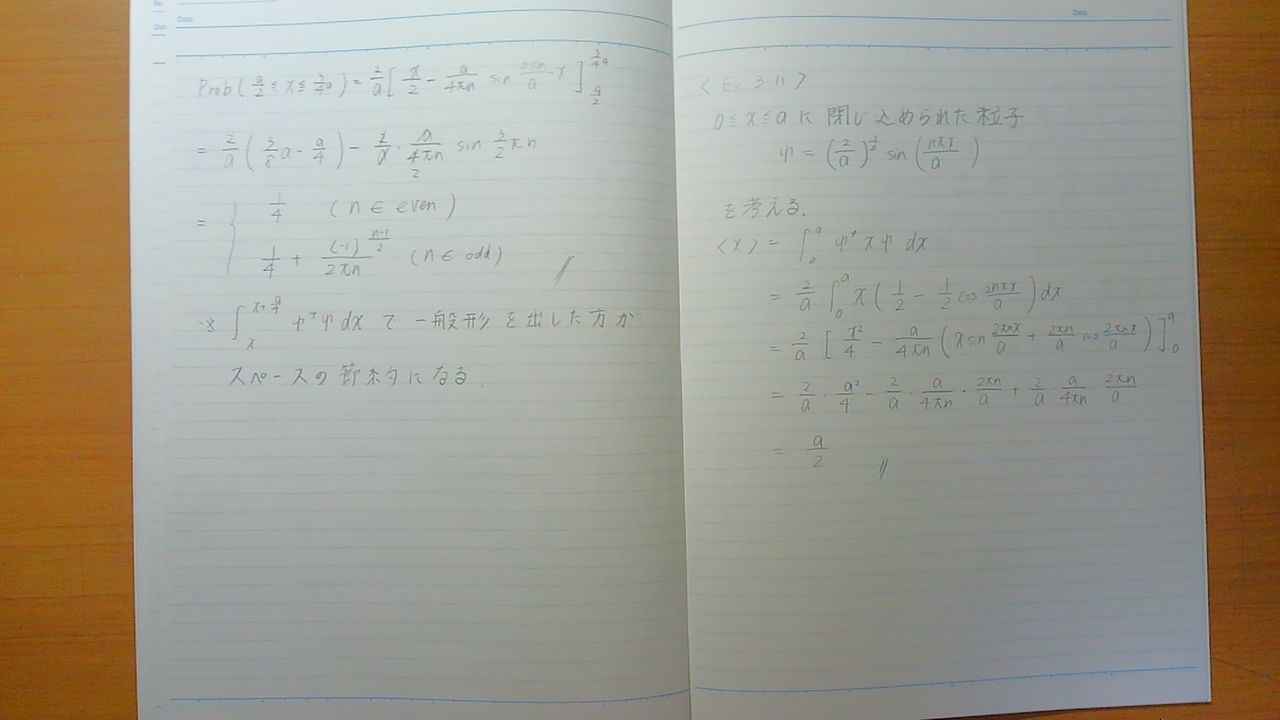 Prob(a/2 ≤ x ≤ 3/4 a) = 2/a [ x/2 - a/4πn sin 2πn/a x ]_{a/2}^{3/4 a}
= 2/a ( 3/8 a - a/4 ) - 2/a · a/4πn sin 3/2 πn
2
= { 1/4 (n ∈ even)
1/4 + (-1)^{(n-1)/2} / 2πn (n ∈ odd) //
※ ∫_x^{x+a/4} ψ*ψ dx で 一般形 を 出した 方が
スペースの 節約になる.
Date
< Ex 3-11 >
0 ≤ x ≤ a に 閉じ込められた 粒子
ψ = (2/a)^{1/2} sin ( nπx/a )
を 考える.
<x> = ∫_0^a ψ* x ψ dx
= 2/a ∫_0^a x ( 1/2 - 1/2 cos 2nπx/a ) dx
= 2/a [ x²/4 - a/4πn ( x sin 2πnx/a + 2πn/a cos 2πnx/a ) ]_0^a
= 2/a · a²/4 - 2/a · a/4πn · 2πn/a + 2/a · a/4πn · 2πn/a
= a/2 //